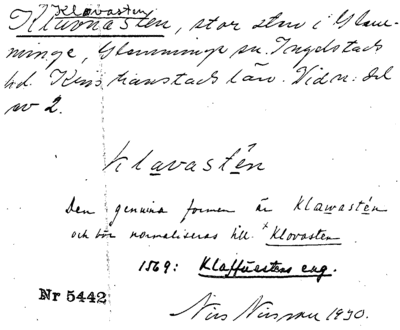 Klovasten
Klavnasten, stor sten i Glem-
minge, Glemminge sn. Ingelstads
hd. Kristianstads län. Vid n:
nr 2.
Klavastén
Den genuina formen är Klawastén
och bör normaliseras till *Klovasten
1569: Klaffuestens eng.
Nr 5442
Nils Nilsson 1930.